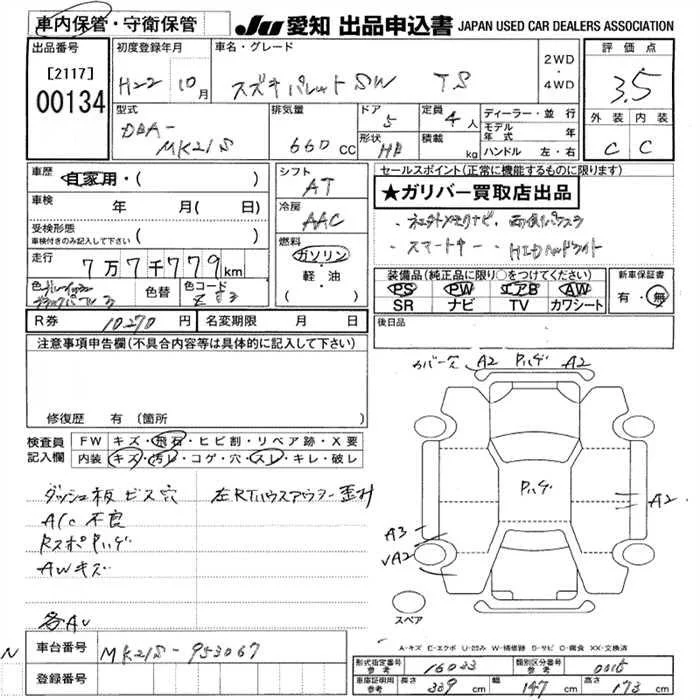 車内保管・守衛保管 JU 愛知 出品申込書 JAPAN USED CAR DEALERS ASSOCIATION
出品番号
[2117]
00134
初度登録年月
H22 10月
車名・グレード
スズキパレットSW TS
2WD
・
4WD
評価点
3.5
外装 内装
C C
型式
DBA-
MK21S
排気量
660 cc
ドア
5
形状
HB
定員
4人
積載
kg
ディーラー・並行
モデル年式 年
ハンドル 左・右
車歴 自家用・( )
車検 年 月(日)
受検形態
車検付きのみ記入して下さい ( )
走行 7万7千779km
色 色替 色コード
シフト
AT
冷房
AAC
燃料
ガソリン
・軽・油
( )
セールスポイント(正常に機能するものに限ります)
★ガリバー買取店出品
・スマートキー ・HIDヘッドライト
装備品(純正品に限り○をつけてください)
PS PW エアB AW
SR ナビ TV カワシート
新車保証書
有・無
R券 10270円 名変期限 月 日
後日品
注意事項申告欄(不具合内容等は具体的に記入して下さい)
修復歴 有(箇所 )
検査員記入欄
FW キズ・飛石・ヒビ割・リペア跡・X要
内装 キズ・汚レ・コゲ・穴・スレ・キレ・破レ
ダッシュ板ビス穴
A/C不良
RスポPハゲ
AWキズ
各AU
カバー欠 A2 Pハゲ A2
Pハゲ
A2
A3
VA2
スペア
A-キズ E-エクボ U-凹み W-補修跡 S-サビ C-腐食 XX-交換済
N
車台番号 MK21S-953067
登録番号
形式指定番号 参考 16033 類別区分番号 参考 0015
車庫証明用 参考 長さ 339cm 幅 147cm 高さ 173cm